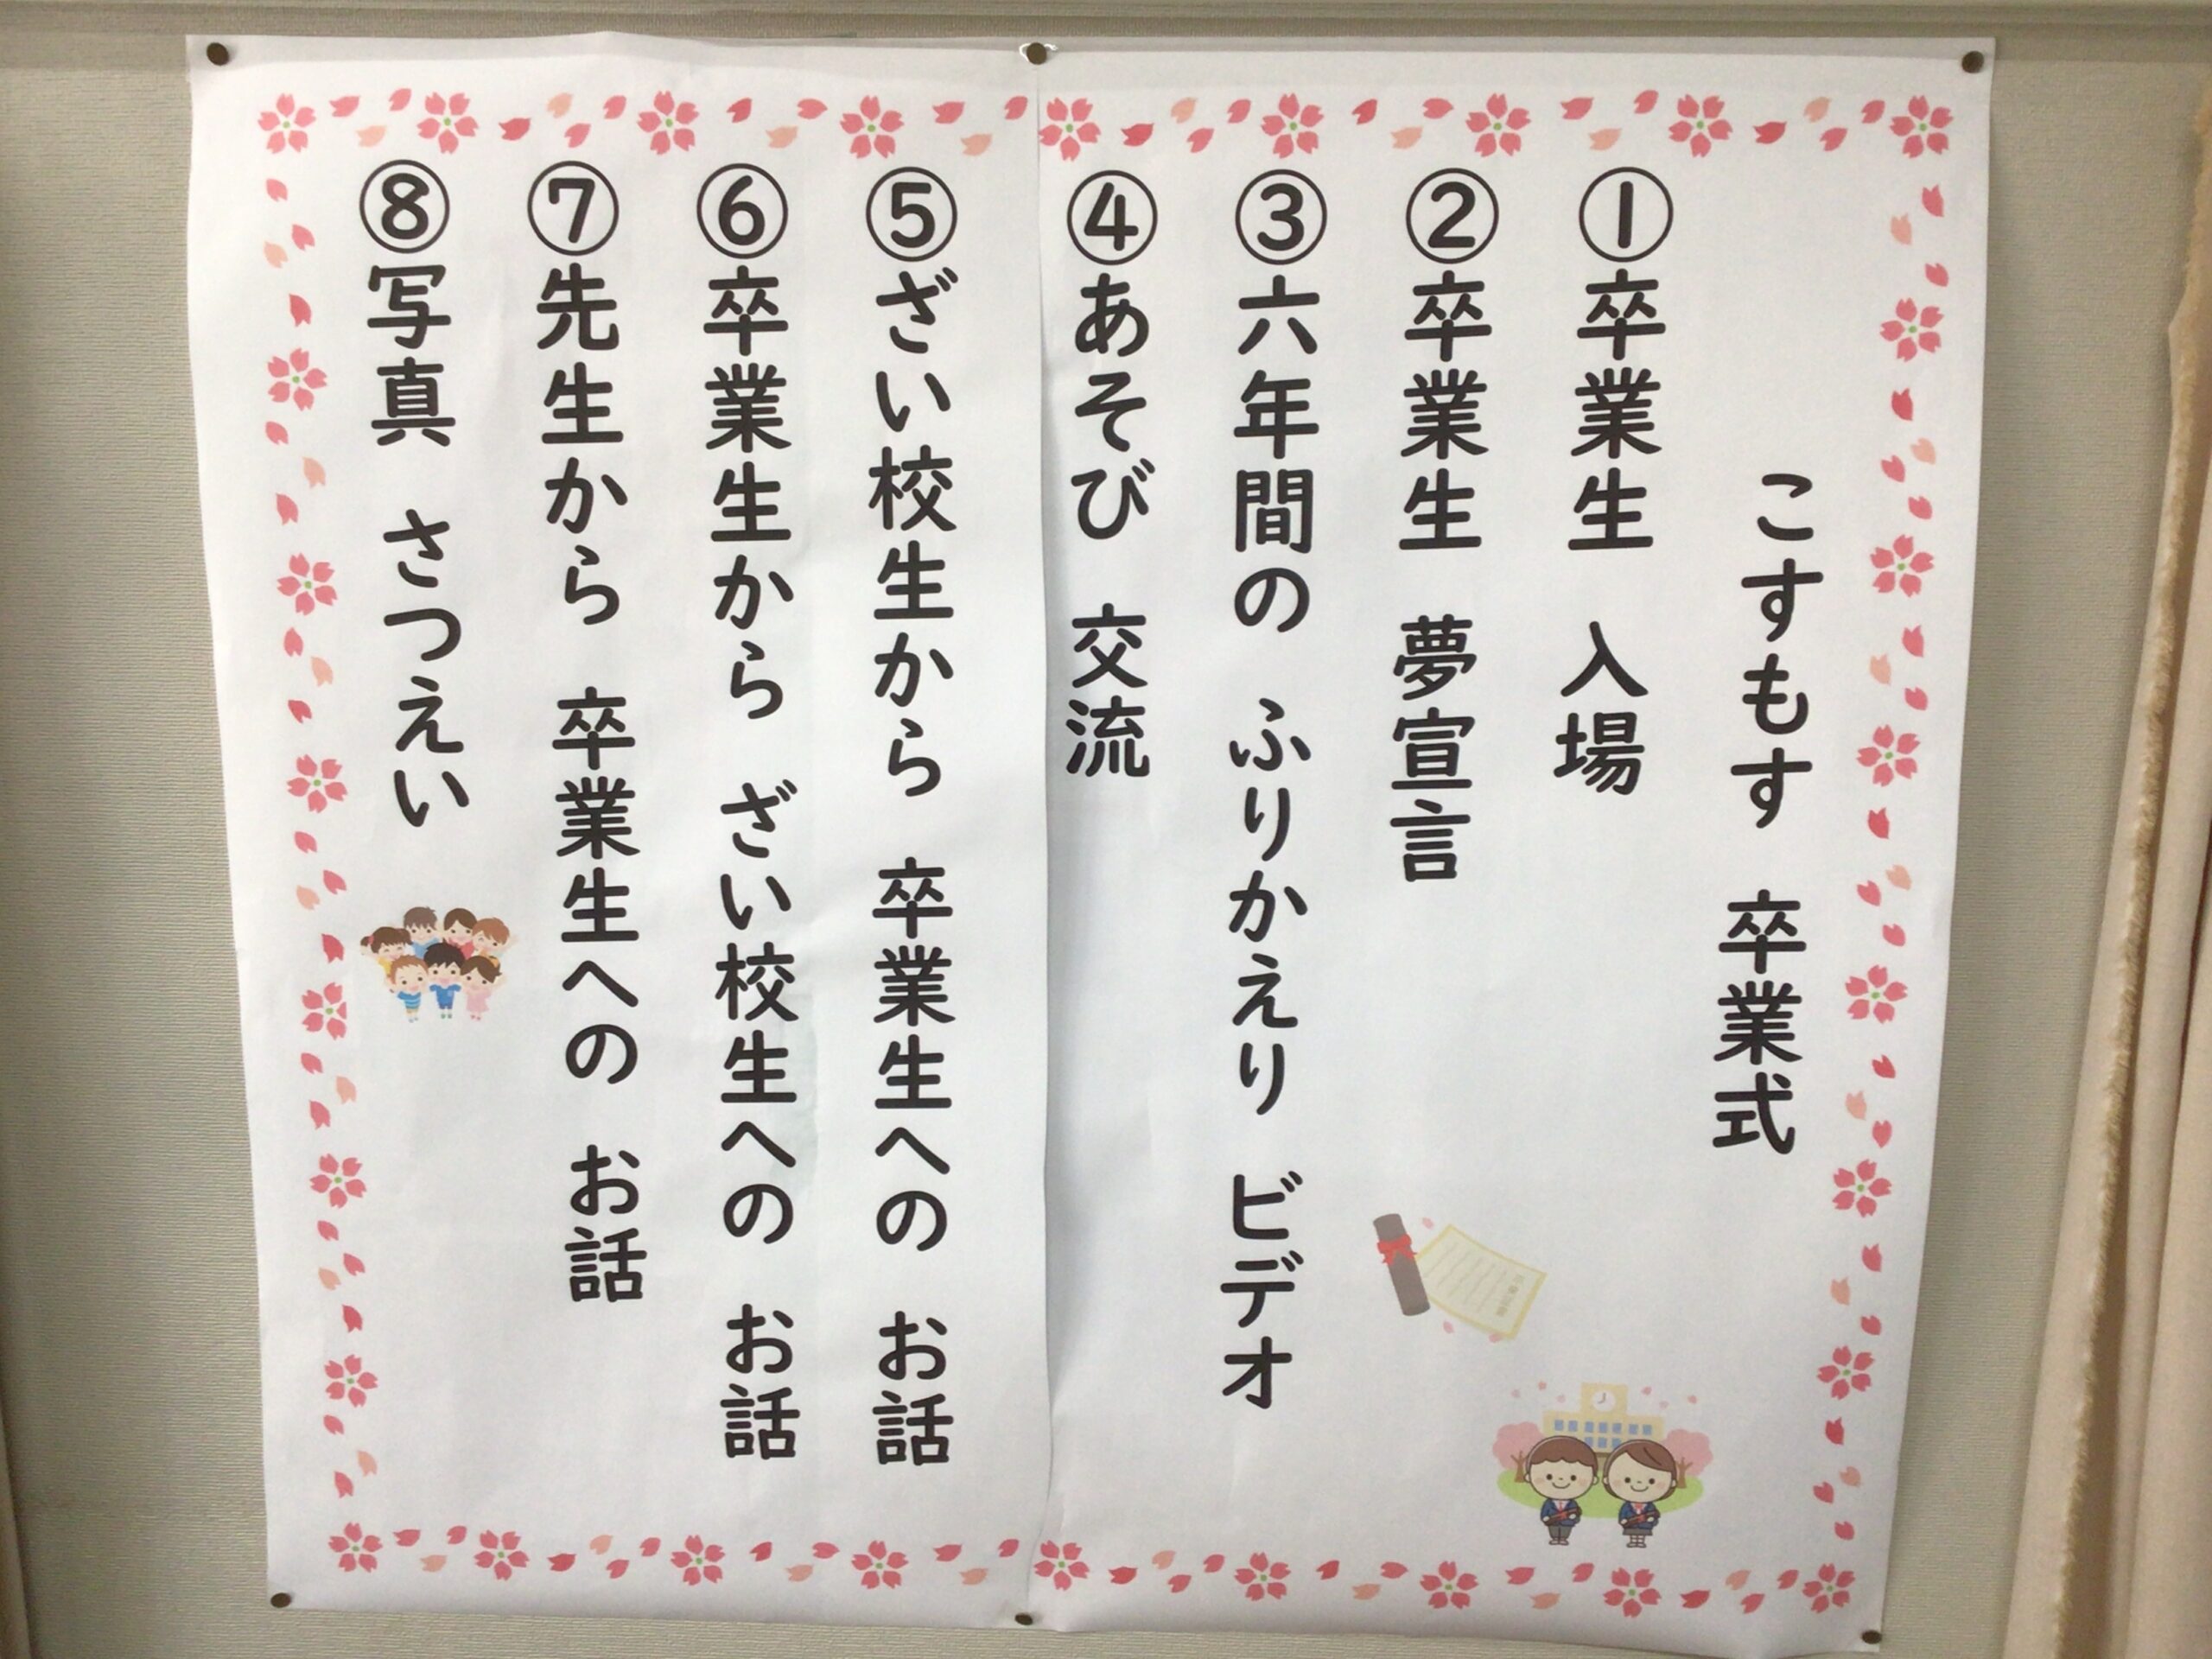 こすもす　卒業式
①卒業生　入場
②卒業生　夢宣言
③六年間の　ふりかえり　ビデオ
④あそび　交流
⑤ざい校生から　卒業生への　お話
⑥卒業生から　ざい校生への　お話
⑦先生から　卒業生への　お話
⑧写真　さつえい